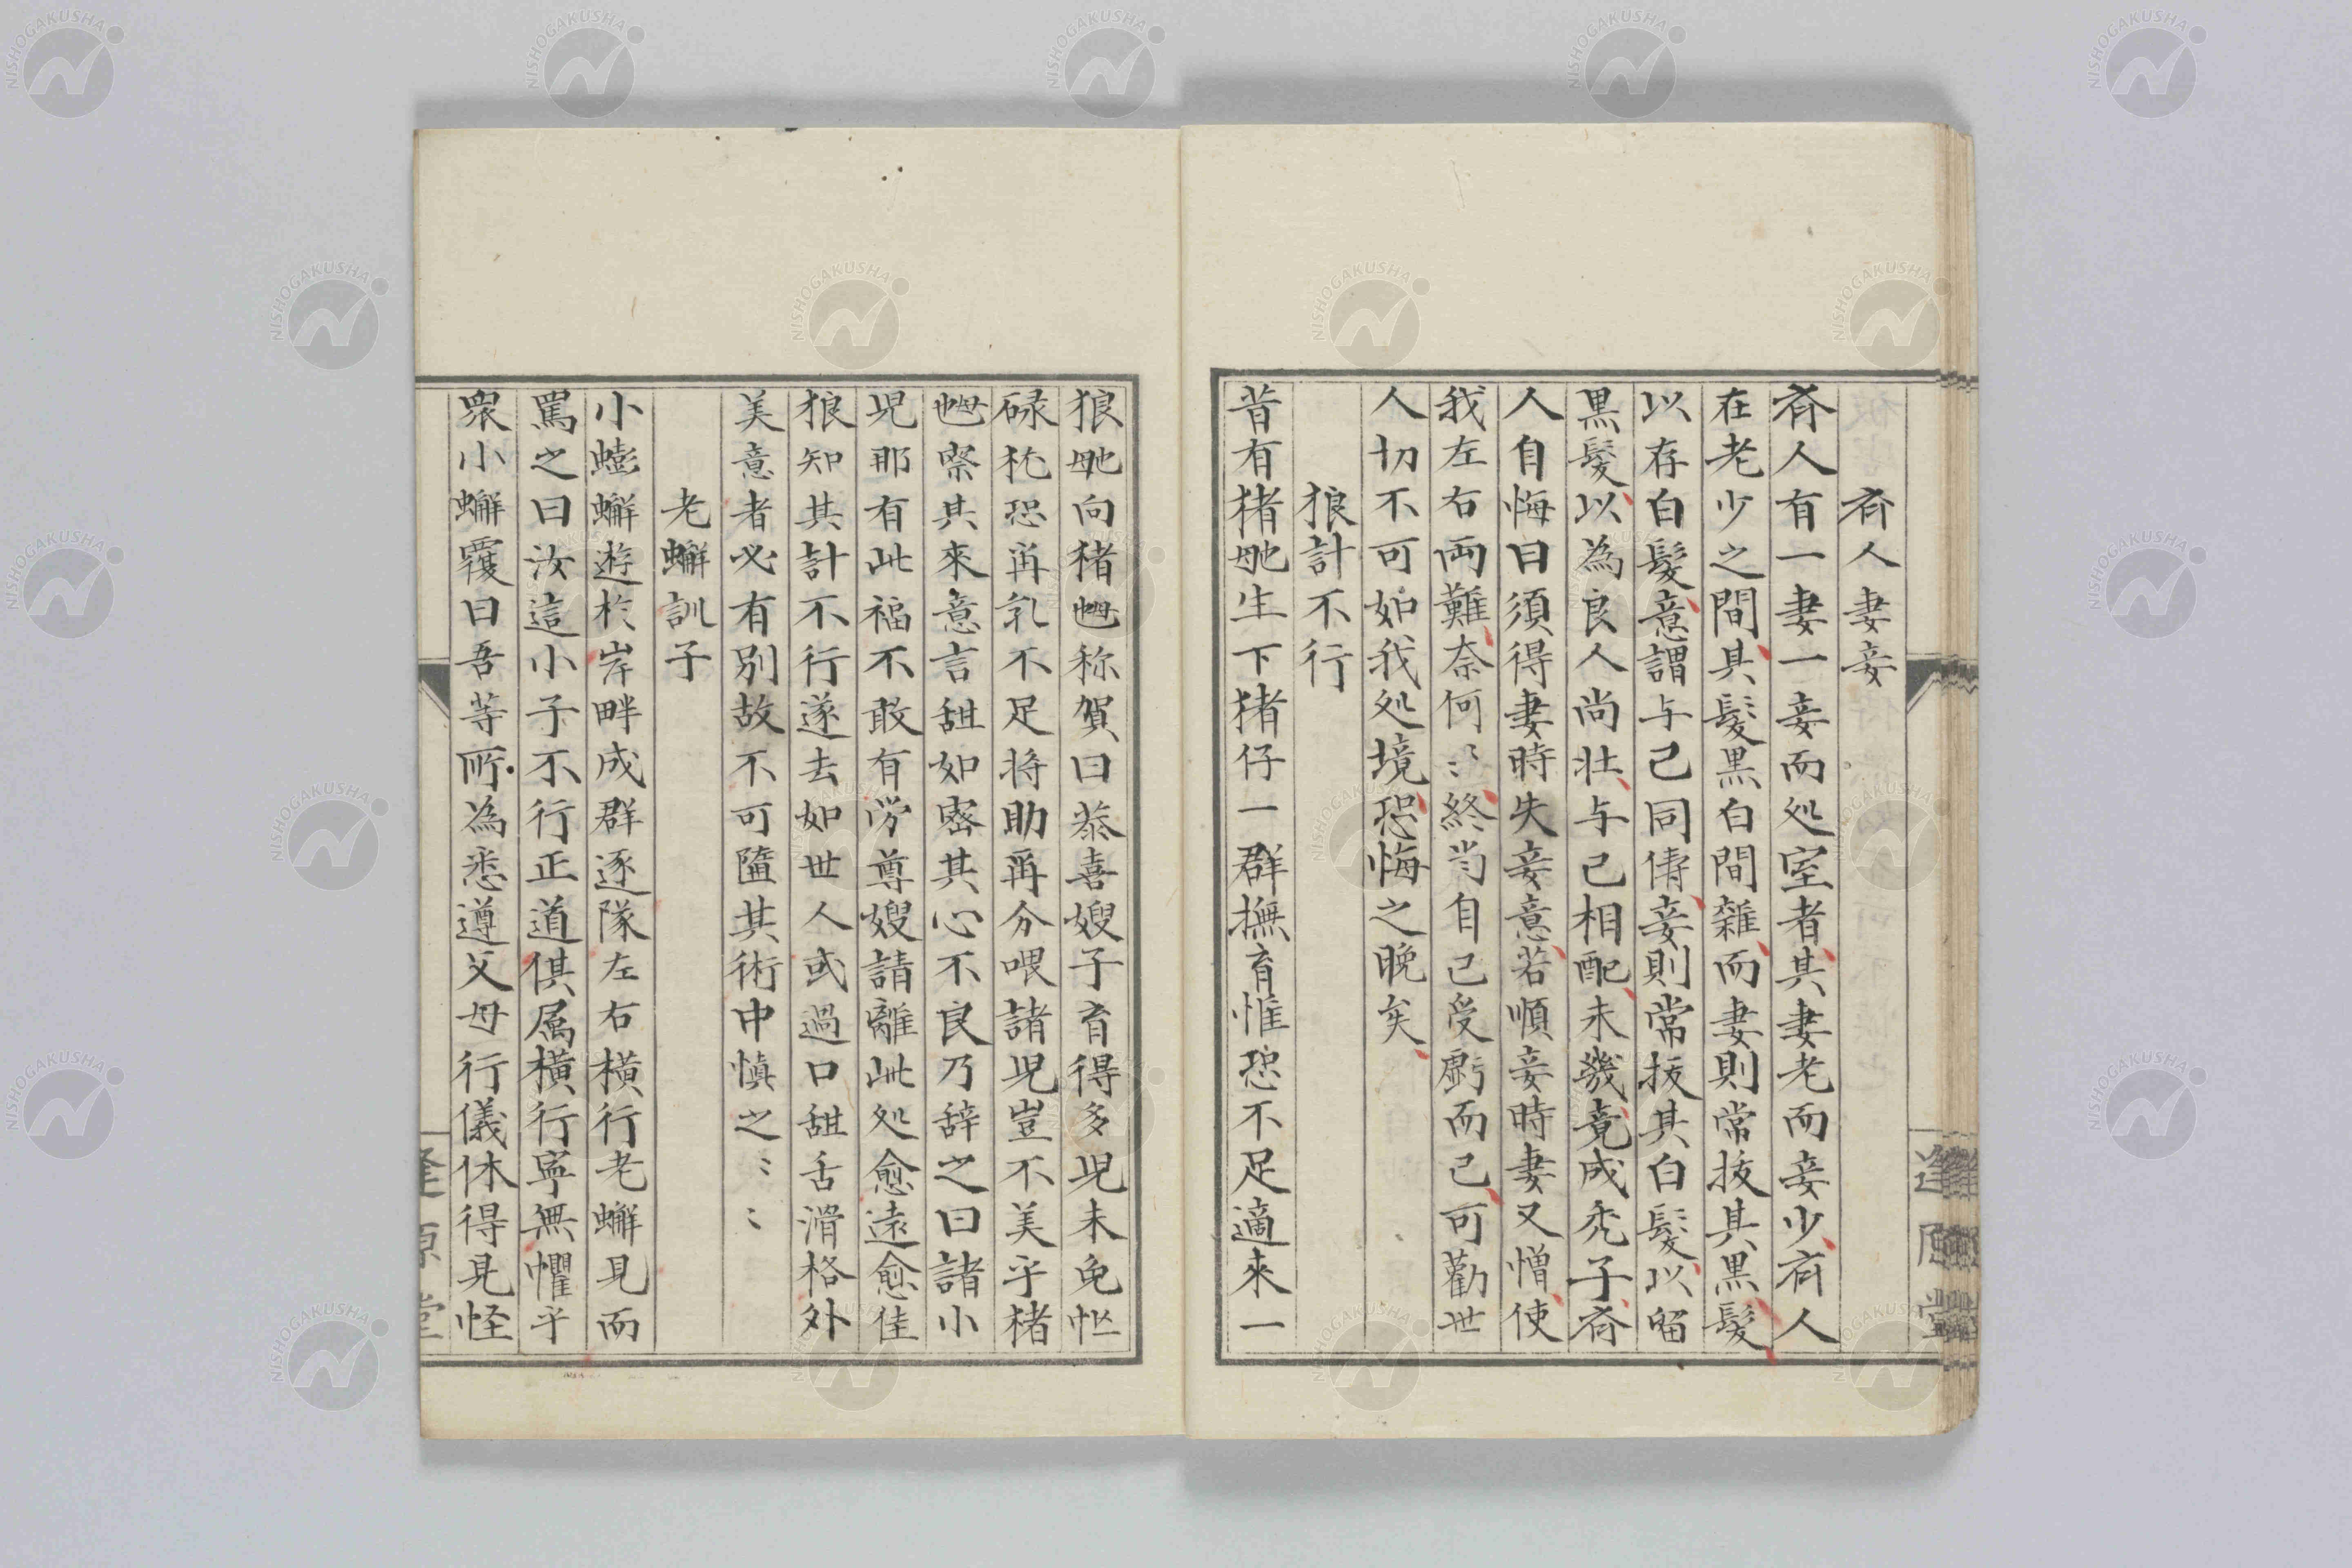 斉人妻妾
斉人有一妻一妾而処室者其妻老而妾少斉人
在老少之間其髮黒白間雑而妻則常抜其黒髮
以存白髮意謂与己同儔妾則常抜其白髮以留
黒髮以為良人尚壮与己相配未幾竟成禿子斉
人自悔曰須得妻時失妾意若順妾時妻又憎使
我左右両難奈何〻〻終当自己受虧而已可勸世
人切不可如我処境恐悔之晩矣
狼計不行
昔有猪𡛽生下猪仔一群撫育惟恐不足適來一
狼𡛽向猪乸称賀曰恭喜嫂子育得多児未免忙
碌犹恐再乳不足将助再分喂諸児豈不美乎楮
乸察其來意言甜如密其心不良乃辞之曰諸小
児那有此福不敢有労尊嫂請離此処愈遠愈佳
狼知其計不行遂去如世人或過口甜舌滑格外
美意者必有別故不可墮其術中慎之〻〻
老蠏訓子
小蟛蠏遊於岸畔成群逐隊左右横行老蠏見而
罵之曰汝這小子不行正道倶属横行寧無懼乎
衆小蠏覆曰吾等所為悉遵父母行儀休得見怪
逢原堂
NISHOGAKUSHA